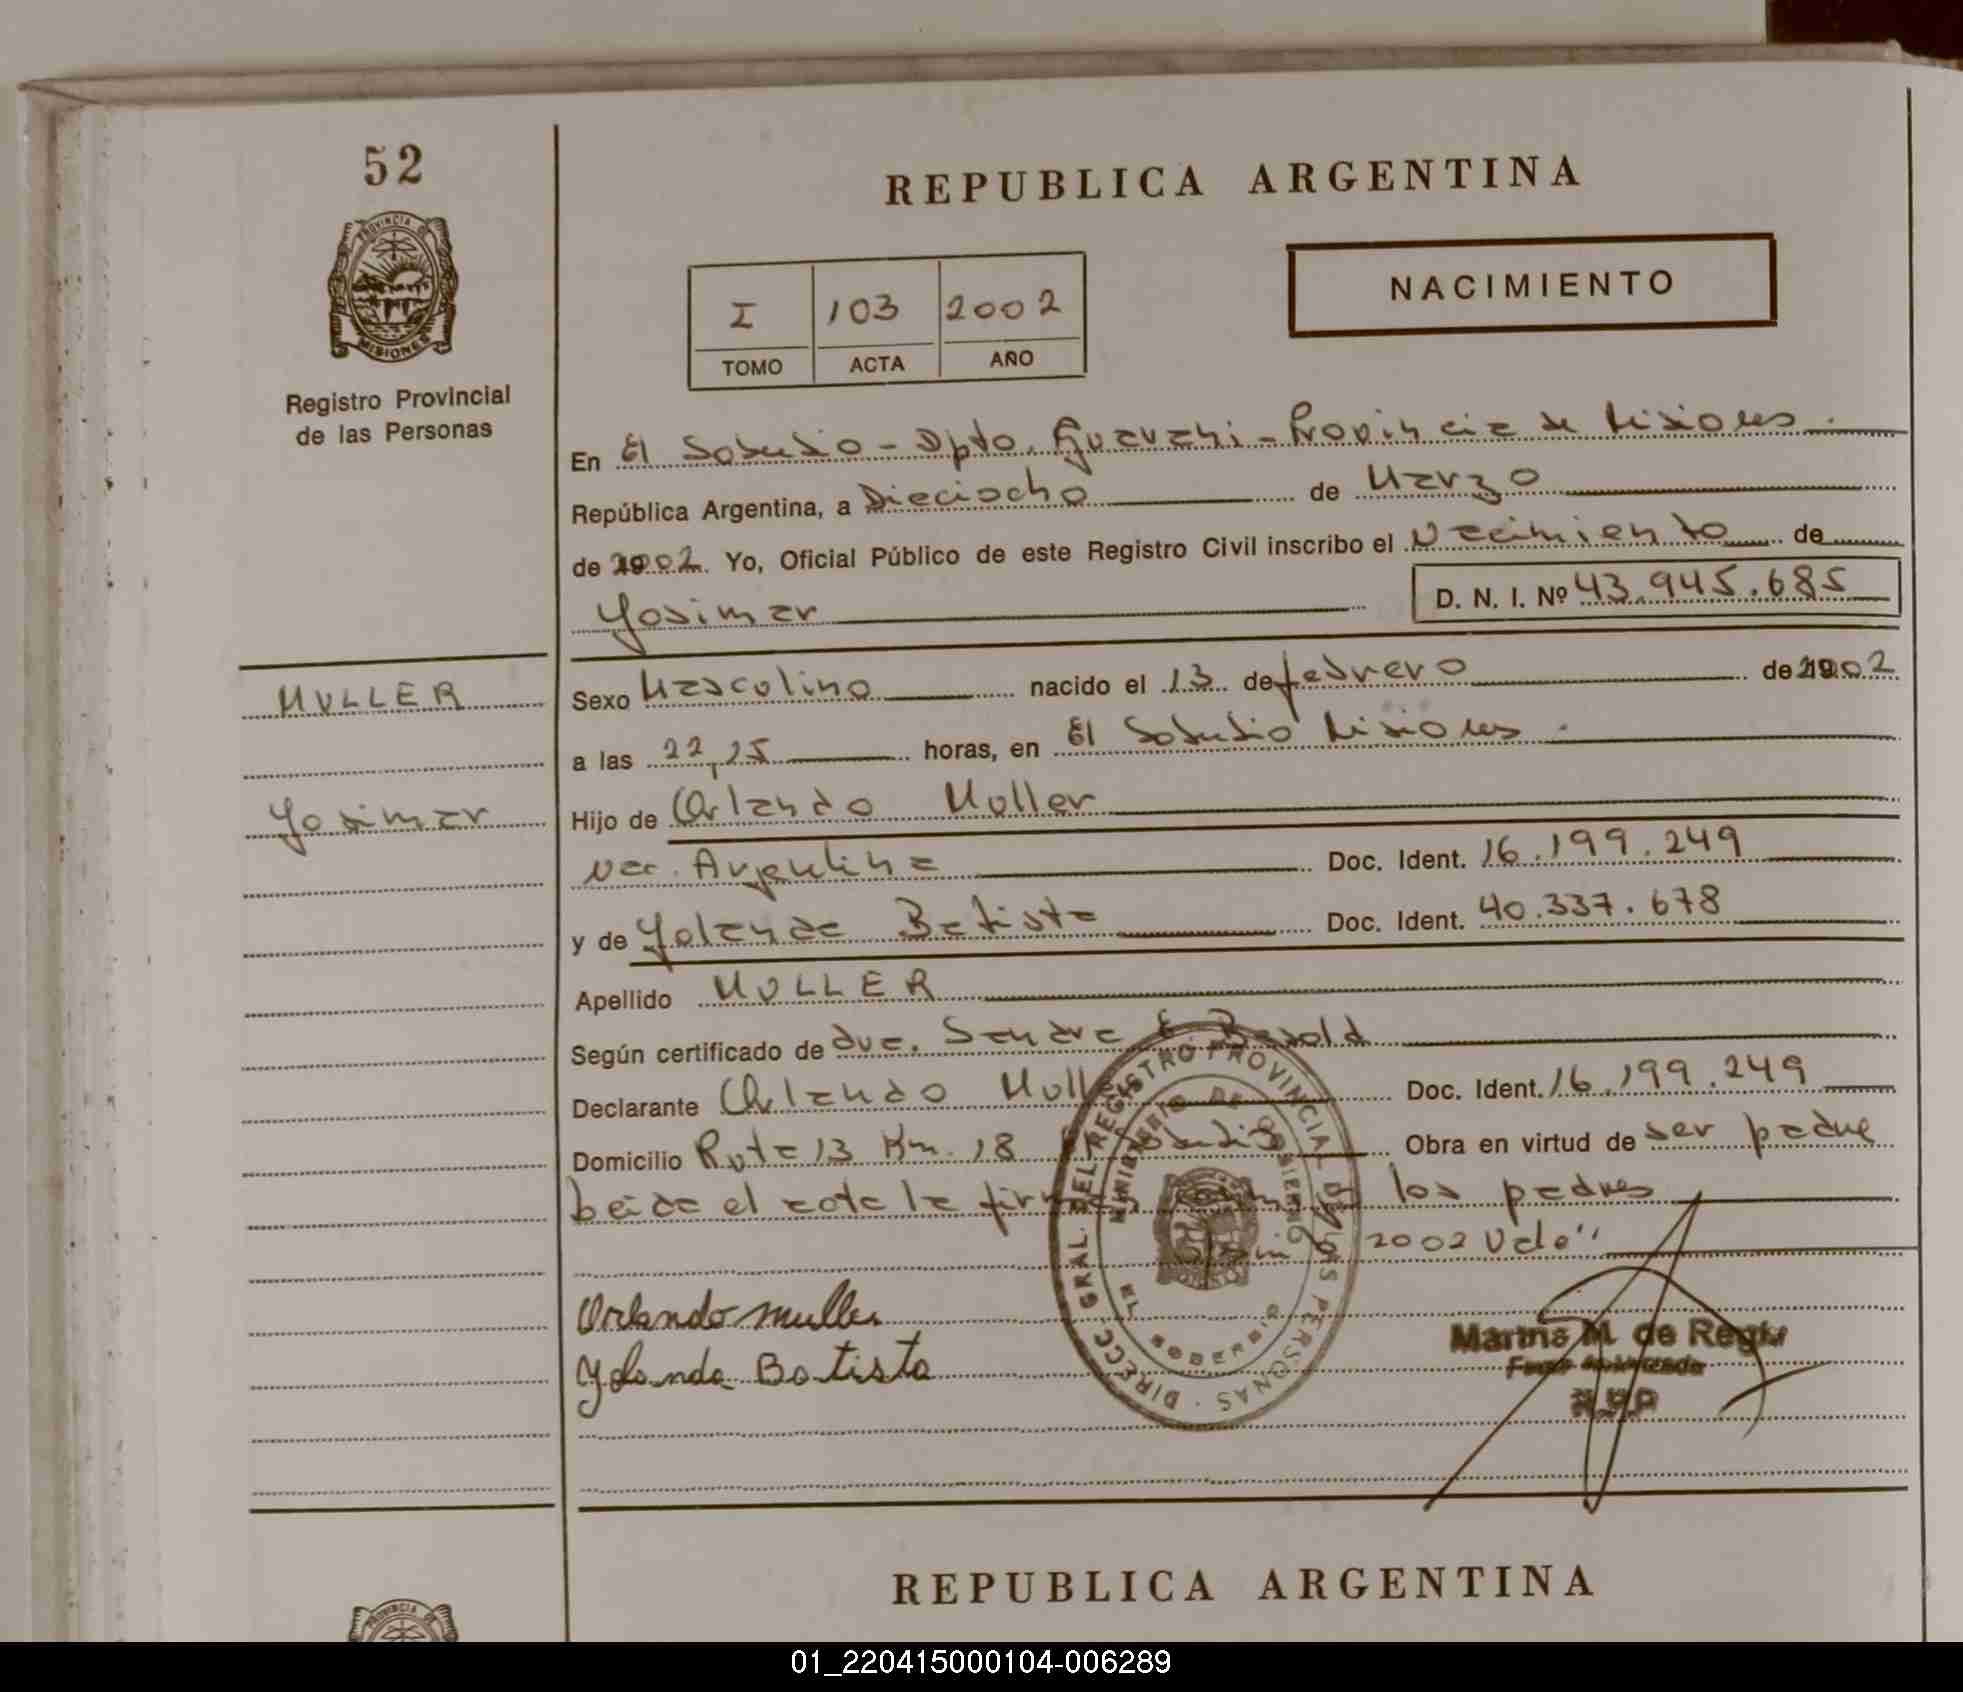 52
REPUBLICA ARGENTINA
PROVINCIA DE
MISIONES
Registro Provincial
de las Personas
I 103 2002
TOMO ACTA AÑO
NACIMIENTO
En El Soberbio - Dpto. Guarani - Provincia de Misiones.
República Argentina, a Dieciocho de Marzo
de 2002. Yo, Oficial Público de este Registro Civil inscribo el Nacimiento de
Yosimar D. N. I. Nº 43.945.685
MULLER
Yosimar
Sexo Masculino nacido el 13 de febrero de 2002
a las 22,25 horas, en El Soberbio Misiones.
Hijo de Orlando Muller
nac. Argentina Doc. Ident. 16.199.249
y de Yolanda Batista Doc. Ident. 40.337.678
Apellido MULLER
Según certificado de dra. Sandra E
Declarante Orlando Muller Doc. Ident. 16.199.249
Domicilio Ruta 13 Km. 18 El Soberbio Obra en virtud de ser padre
leida el acta la firman los padres
2002 Vale"
Orlando muller
Yolanda Batista
DIRECC. GRAL. DEL REGISTRO PROVINCIAL DE LAS PERSONAS
MINISTERIO DE GOBIERNO
EL SOBERBIO
Marina M. de Regis
REPUBLICA ARGENTINA
PROVINCIA
01_220415000104-006289